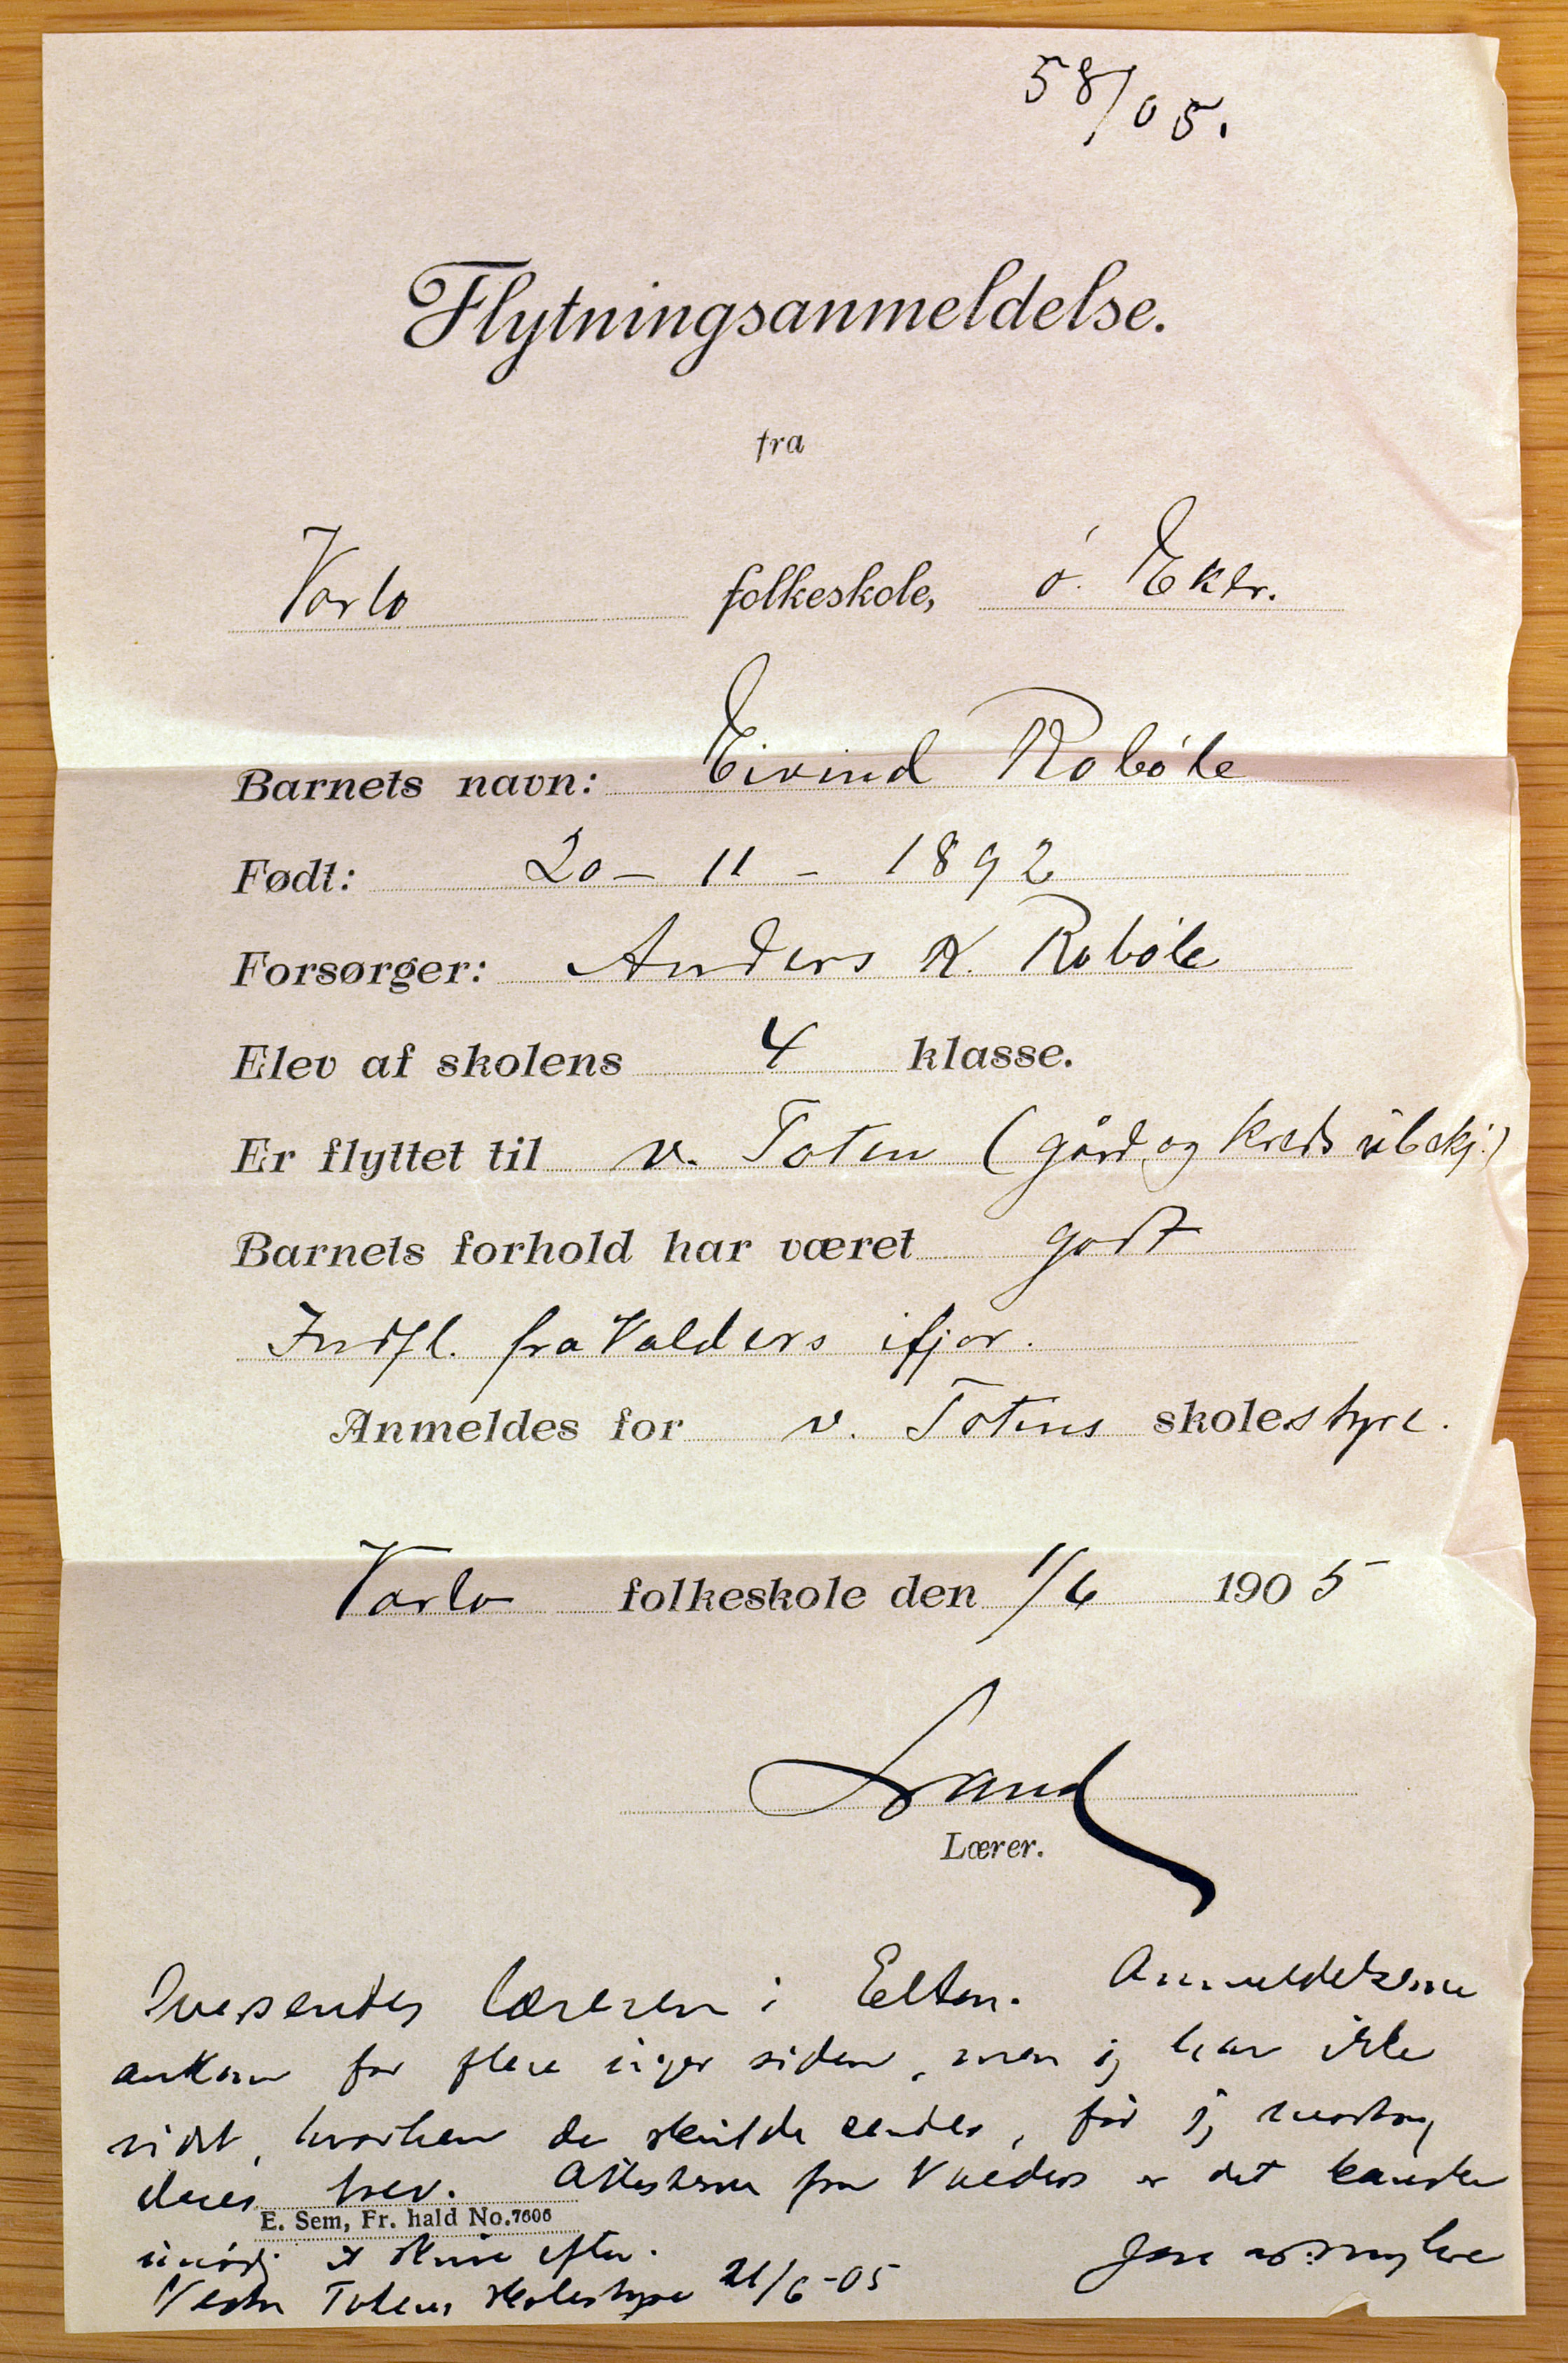 58/05.
Flytningsanmeldelse.
fra
Varlo folkeskole, ö. Eker.
Barnets navn: Eivind Robøle
Født: 20 - 11 - 1892
Forsørger: Anders K. Robøle
Elev af skolens 4 klasse.
Er flyttet til v. Toten (gård og kreds übekj.)
Barnets forhold har været godt
Indfl. fra Valders ifjor.
Anmeldes for v. Totens skolestyre.
Varlo folkeskole den 1/6 1905
Sand
Lærer.
Oversendes læreren i Eelton. Anmeldelserne
ankom for flere uger siden, men jeg har ikke
vidst, hvorhen de skulde sendes, før jeg modtog
deres brev. Attesterne fra Valders er det kanske
E. Sem, Fr. hald No. 7606
unødig at skrive efter.
Vestre Totens skolestyre 21/6-05